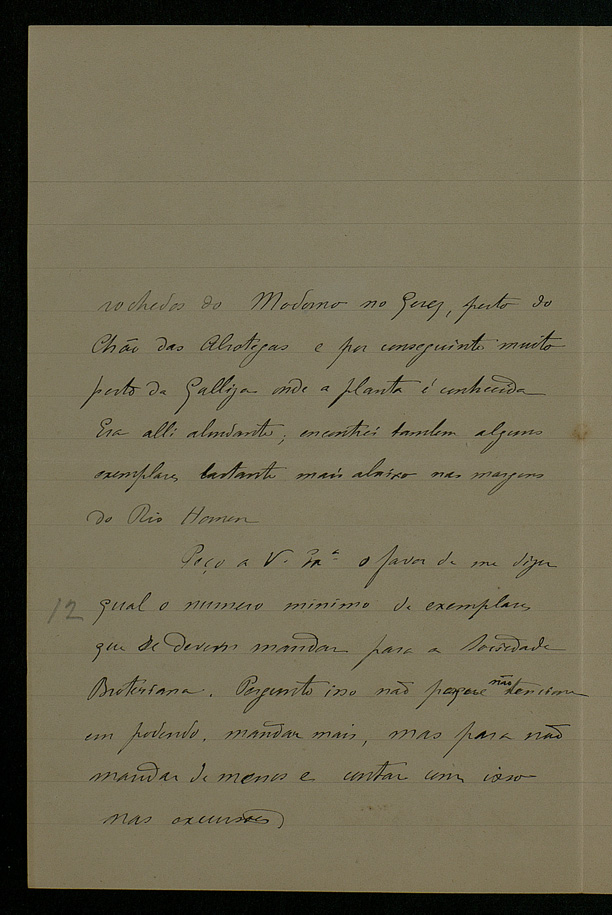 rochedos do Modorno no Gerez, perto do
Chão das Abrotegas e por conseguinte muito
perto da Galliza onde a planta é conhecida
Era alli abundante; encontrei tambem alguns
exemplares bastante mais abaixo nas margens
do Rio Homem
Peço a V. Exª o favor de me dizer
12 qual o numero minimo de exemplares
que se devem mandar para a Sociedade
Broteriana. Pergunto isso não porque não tencione
em podendo, mandar mais, mas para não
mandar de menos e contar com isso
nas excursões